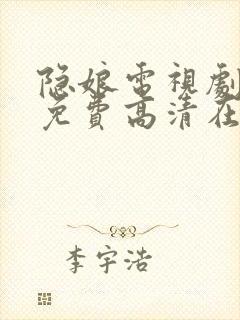 隐娘電視劇
免費高清在
李宇浩